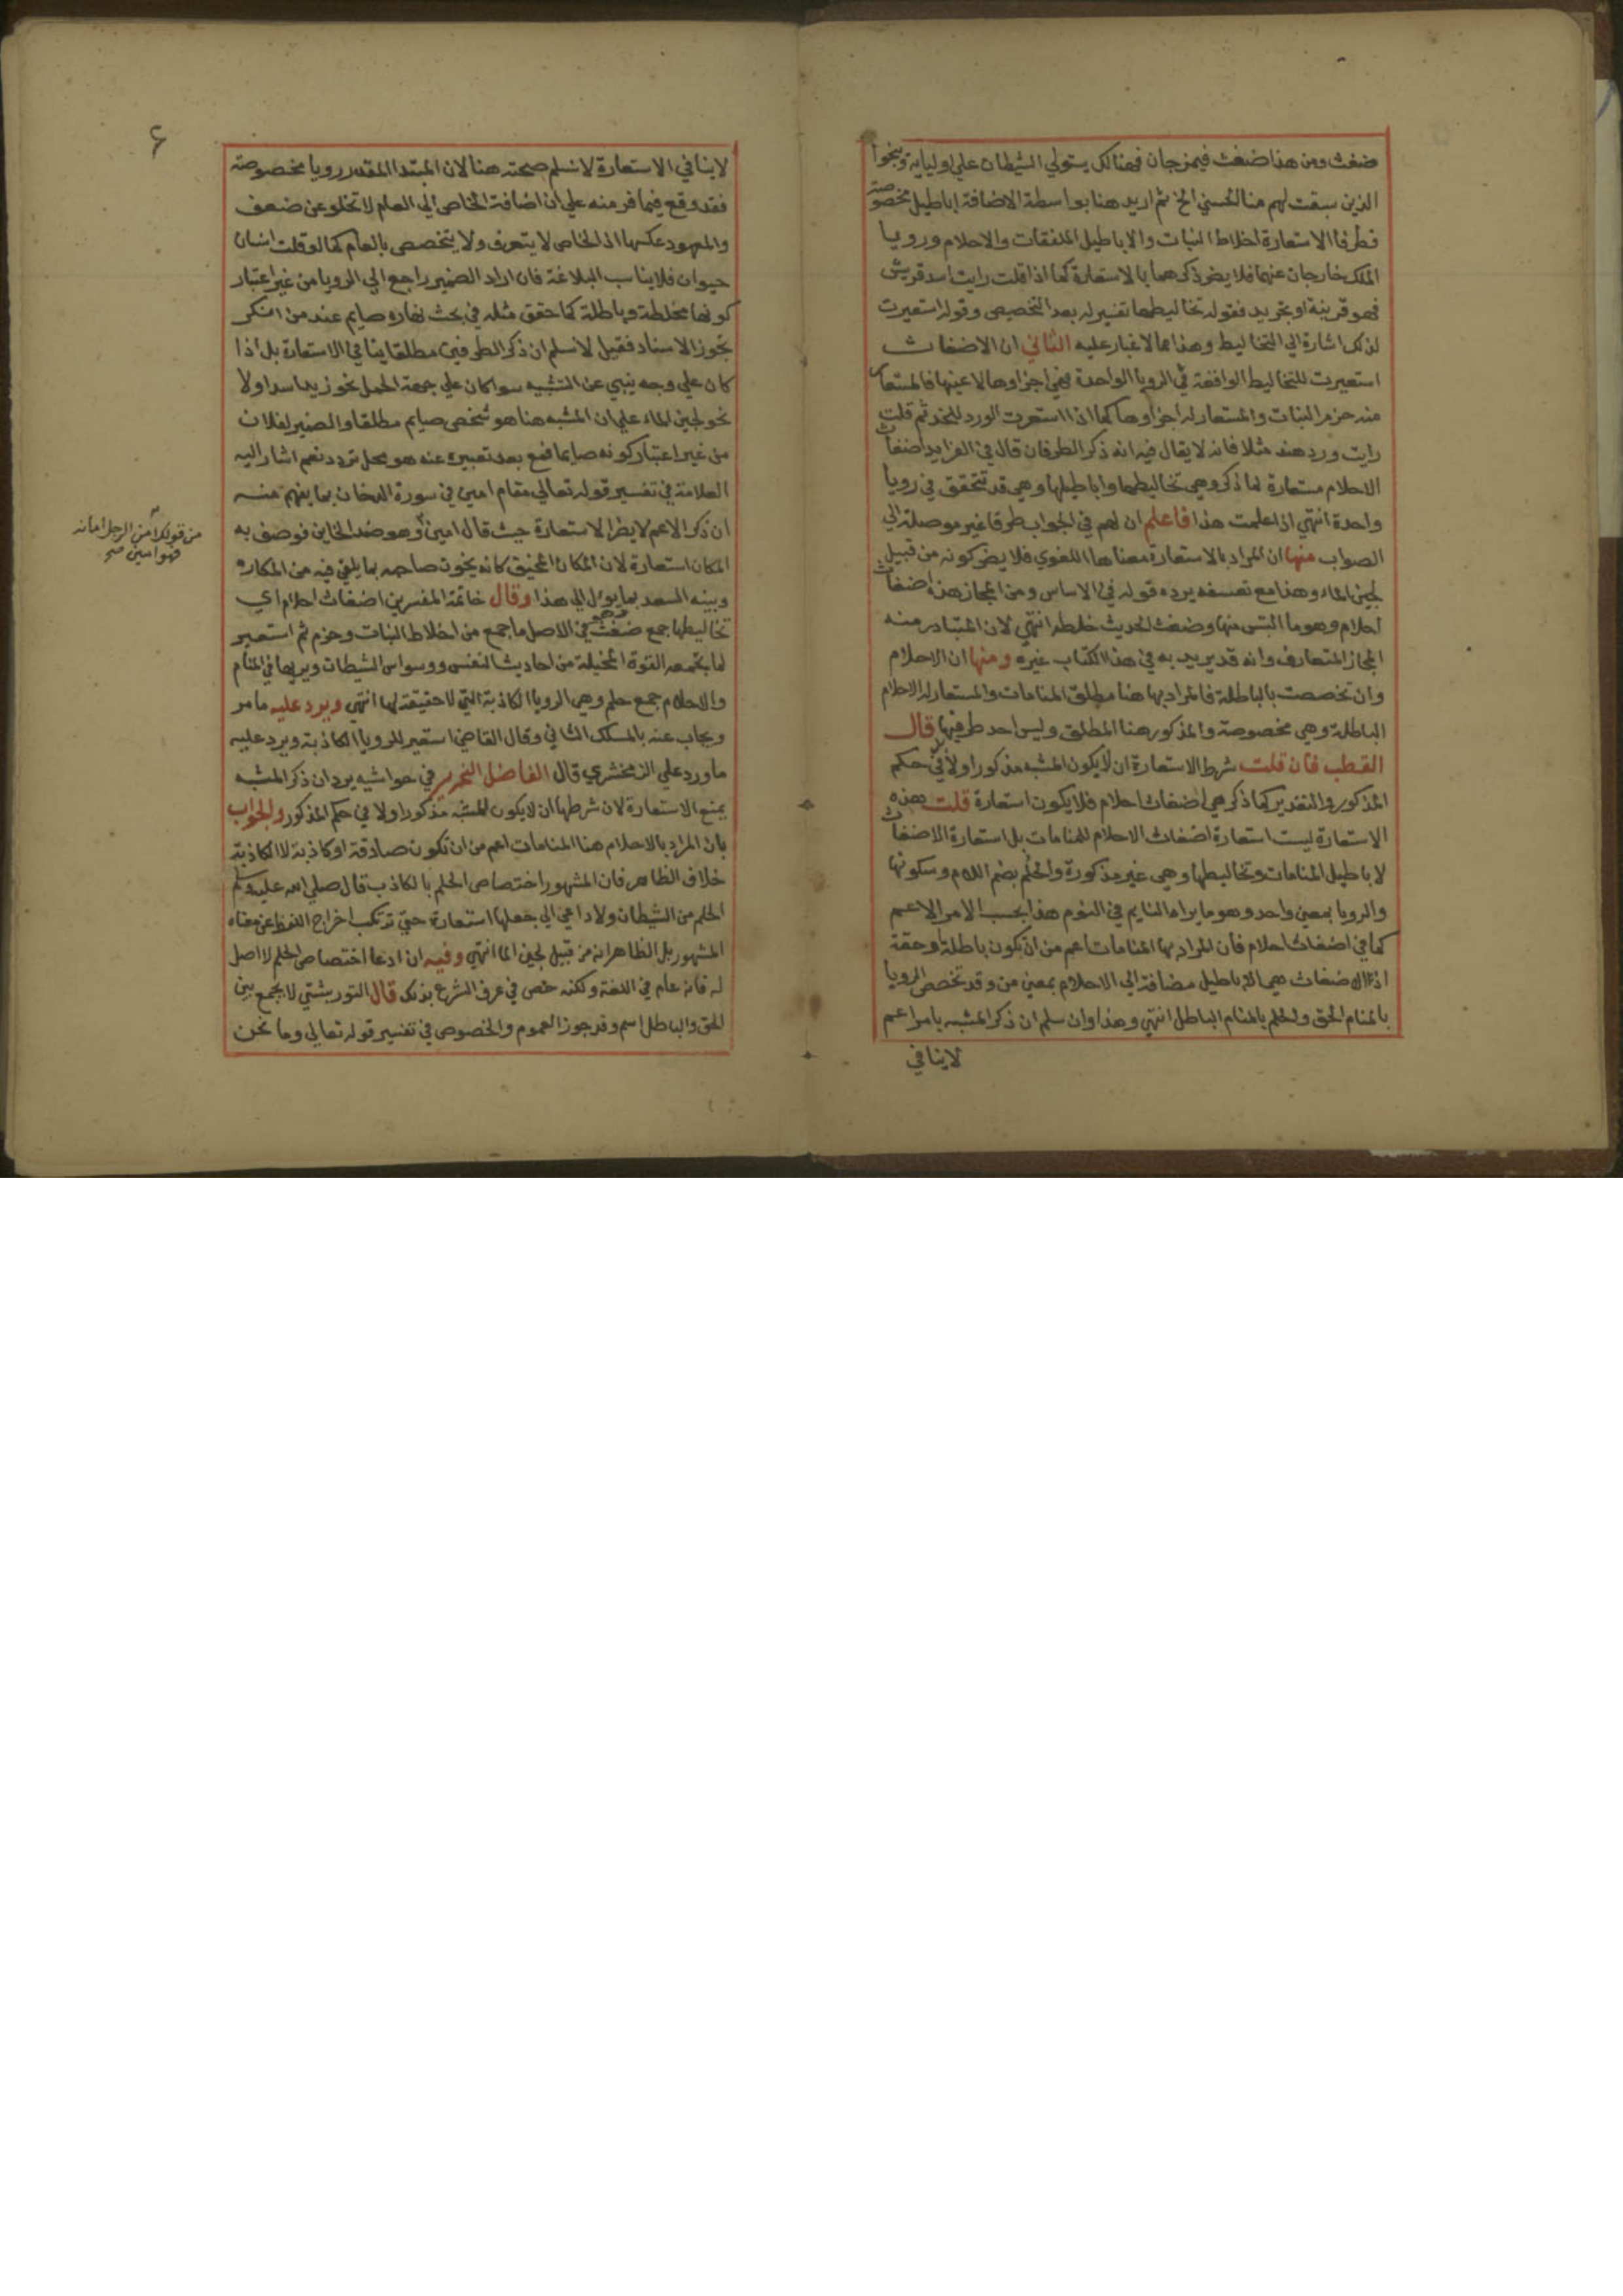 ضغث ومن هذا ضغث فيمزجان فهنالك يستولي الشيطان علي اوليايه وينجوا
الذين سبقت لهم منا الحسني الخ ثم اريد هنا بواسطة الاضافة اباطيل مخصوصة
فطرفا الاستعارة اخلاط النبات والاباطيل الملفقات والاحلام ورويا
الملك خارجان عنهما فلا يضر ذكرهما بالاستعارة كما اذا قلت رايت اسد قريش
فهو قرينة او تجريد فقوله تخاليطها تفسير له بعد التخصيص وقوله استعيرت
لذلك اشارة الي التخاليط وهذا مما لا غبار عليه الثاني ان الاضغاث
استعيرت للتخاليط الواقعة في الرويا الواحدة فهي اجزاوها لا عينها فالمستعار
منه حزم النبات والمستعار له اجزاوها كما اذا استعرت الورد للخد ثم قلت
رايت ورد هند مثلا فانه لا يقال فيه انه ذكر الطرفان قال في الفرايد اضغاث
الاحلام مستعارة لما ذكر وهي تخاليطها واباطيلها وهي قد تتحقق في رويا
واحدة انتهي اذا علمت هذا فاعلم ان لهم في الجواب طرقا غير موصلة الي
الصواب منها ان المراد بالاستعارة معناها اللغوي فلا يضر كونه من قبيل
لجين الماء وهذا مع تعسفه يرده قوله في الاساس ومن المجاز هذه اضغاث
احلام وهو ما التبس منها وضغث الحديث خلطه انتهي لان المتبادر منه
المجاز المتعارف وانه قد يريد به في هذا الكتاب غيره ومنها ان الاحلام
وان تخصصت بالباطلة فالمراد بها هنا مطلق المنامات والمستعار له الاحلام
الباطلة وهي مخصوصة والمذكور هنا المطلق وليس احد طرفيها قال
القطب فان قلت شرط الاستعارة ان لا يكون المشبه مذكورا ولا في حكم
المذكور والتقدير كما ذكر هي اضغاث احلام فلا يكون استعارة قلت هذه
الاستعارة ليست استعارة اضغاث الاحلام للمنامات بل استعارة الاضغاث
لاباطيل المنامات وتخاليطها وهي غير مذكورة والحلم بضم اللام وسكونها
والرويا بمعني واحد وهو ما يراه النايم في النوم هذا بحسب الامر الاعم
كما في اضغاث احلام فان المراد بها المنامات اعم من ان يكون باطلة او حقة
اذ الاضغاث هي الاباطيل مضافة الي الاحلام بمعني من وقد تخصص الرويا
بالمنام الحق والحلم بالمنام الباطل انتهي وهذا وان سلم ان ذكر المشبه بامر اعم
لا ينافي
۶
لا ينافي الاستعارة لا نسلم صحته هنا لان المبتدا المقدر رويا مخصوصة
فقد وقع فيما فر منه علي ان اضافة الخاص الي العام لا تخلو عن ضعف
والمعهود عكسها اذ الخاص لا يتعرف ولا يتخصص بالعام كما لو قلت انسان
حيوان فلا يناسب البلاغة فان اراد الضمير راجع الي الرويا من غير اعتبار
كونها مخلطة وباطلة كما حقق مثله في بحث نهاره صايم عند من انكر
تجوز الاسناد فقيل لا نسلم ان ذكر الطرفين مطلقا ينافي الاستعارة بل اذا
كان علي وجه ينبي عن التشبيه سوا كان علي جهة الحمل نحو زيد اسد اولا
نحو لجين الماء علي ان المشبه هنا هو شخص صايم مطلقا والضمير لفلان
من غير اعتبار كونه صايما فمع بعد تعبيره عنه هو محل تردد نعم اشار اليه
العلامة في تفسير قوله تعالي مقام امين في سورة الدخان بما يفهم منه
ان ذكر الاعم لا يضر الاستعارة حيث قال امين وهو ضد الخاين فوصف به
المكان استعارة لان المكان المخيف كانه يخون صاحبه بما يلقي فيه من المكاره
من قولك امن الرجل امانه
فهو امين صح
وبينه السعد بما يول الي هذا وقال خاتمة المفسرين اضغاث احلام اي
تخاليطها جمع ضغث وهو في الاصل ما جمع من اخلاط النبات وحزم ثم استعير
لما تجمعه القوة المخيلة من احاديث النفس ووسواس الشيطان ويريها في المنام
والاحلام جمع حلم وهي الرويا الكاذبة التي لا حقيقة لها انتهي ويرد عليه ما مر
ويجاب عنه بالمسلك الثاني وقال القاضي استعير للرويا الكاذبة ويرد عليه
ما ورد علي الزمخشري قال الفاضل النحرير في حواشيه يرد ان ذكر المشبه
يمنع الاستعارة لان شرطها ان لا يكون المشبه مذكورا ولا في حكم المذكور والجواب
بان المراد بالاحلام هنا المنامات اعم من ان تكون صادقة او كاذبة لا الكاذبة
خلاف الظاهر فان المشهور اختصاص الحلم بالكاذب قال صلي الله عليه وسلم
الحلم من الشيطان ولا داعي الي جعلها استعارة حتي ترتكب اخراج اللفظ عن معناه
المشهور بل الظاهر انه من قبيل لجين الما انتهي وفيه ان ادعا اختصاص الحلم لا اصل
له فانه عام في اللغة ولكنه خص في عرف الشرع بذلك قال التوربشتي لا يجمع بين
الحق والباطل اسم وقد جوز العموم والخصوص في تفسير قوله تعالي وما نحن